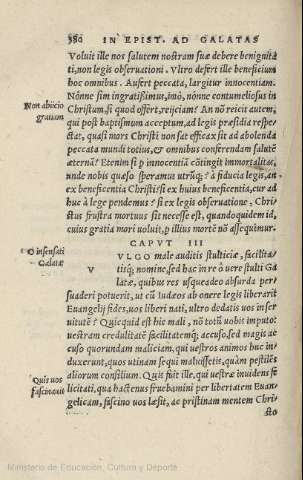 380 IN EPIST. AD GALATAS
Voluit ille nos salutem nostram suæ debere benignita
ti, non legis obseruationi. Vltro defert ille beneficium
hoc omnibus. Aufert peccata, largitur innocentiam.
Non abiicio
gratiam
Nónne sim ingratissimus, imò, nónne contumeliosus in
Christum, si quod offert, reijciam? An nō reicit autem,
qui post baptismum acceptum, ad legis præsidia respe-
ctat, quasi mors Christi non sat efficax sit ad abolenda
peccata mundi totius, & omnibus conferendam salutē
æternā? Etenim si ꝑ innocentiā cōtingit immortalitas,
unde nobis quæso speramus utrūq;? à fiducia legis, an
ex beneficentia Christi? si ex huius beneficentia, cur ad
huc à lege pendemus? si ex legis obseruatione, Chri-
stus frustra mortuus sit necesse est, quandoquidem id,
cuius gratia mori uoluit, ꝑ illius mortē nō assequimur.
CAPVT III
O insensati
Galatæ
VVLGO male auditis stulticiæ, facilita-
tisq; nomine, sed hac in re ò uere stulti Ga
latæ, quibus res usqueadeo absurda per
suaderi potuerit, ut cū Iudæos ab onere legis liberarit
Euangelij fides, uos liberi nati, ultro dedatis uos in ser
uitutē? Quicquid est hic mali, nō totū uobis imputo:
uestram credulitatē facilitatemq; accuso, sed magis ac
cuso quorundam maliciam, qui uestros animos huc in
duxerunt, quos utinam sequi maluissetis, quàm pestilēs
aliorum consilium. Quis fuit ille, qui uestræ inuidens fe
Quis uos
fascinauit
licitati, qua hactenus fruebamini per libertatem Euan-
gelicam, fascino uos læsit, ac pristinam mentem Chri
sto
Ministerio de Educación, Cultura y Deporte